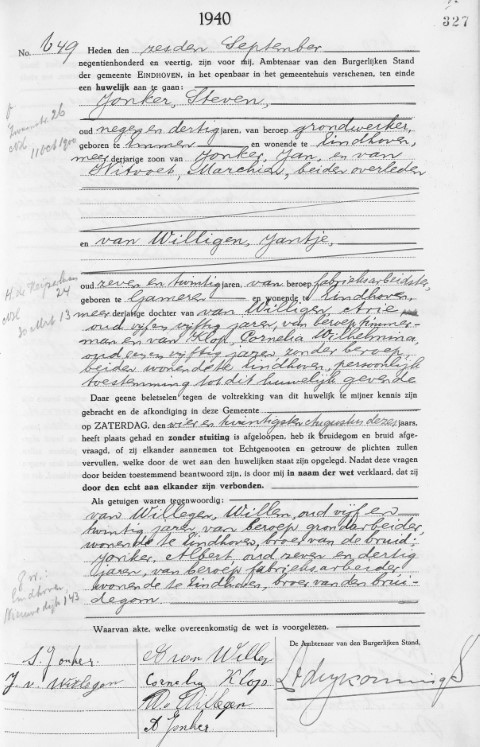 1940
327
No. 649 Heden den zesden September
negentienhonderd en veertig, zijn voor mij, Ambtenaar van den Burgerlijken Stand
der gemeente EINDHOVEN, in het openbaar in het gemeentehuis verschenen, ten einde
een huwelijk aan te gaan:
Jonker, Steven,
oud negen en dertig jaren, van beroep grondwerker,
geboren te Ommen en wonende te Eindhoven,
meerderjarige zoon van Jonker, Jan, en van
Witvoet, Marchien, beiden overleden
en van Willigen, Jantje,
oud zeven en twintig jaren, van beroep fabrieksarbeidster,
geboren te Gameren en wonende te Eindhoven,
meerderjarige dochter van van Willigen, Arie
oud vijf en vijftig jaren, van beroep timmer-
man en van Klop, Cornelia Wilhelmina,
oud zes en vijftig jaren, zonder beroep,
beiden wonende te Eindhoven, persoonlijk
toestemming tot dit huwelijk gevende
Daar geene beletselen tegen de voltrekking van dit huwelijk te mijner kennis zijn
gebracht en de afkondiging in deze Gemeente
op ZATERDAG, den vier en twintigsten Augustus dezes jaars,
heeft plaats gehad en zonder stuiting is afgeloopen, heb ik bruidegom en bruid afge-
vraagd, of zij elkander aannemen tot Echtgenooten en getrouw de plichten zullen
vervullen, welke door de wet aan den huwelijken staat zijn opgelegd. Nadat deze vragen
door beiden toestemmend beantwoord zijn, is door mij in naam der wet verklaard, dat zij
door den echt aan elkander zijn verbonden.
Als getuigen waren tegenwoordig:
van Willigen, Willem, oud vijf en
twintig jaren, van beroep grondarbeider,
wonende te Eindhoven, broer van de bruid;
Jonker, Albert, oud zeven en dertig
jaren, van beroep fabrieksarbeider
wonende te Eindhoven, broer van den brui-
degom.
Waarvan akte, welke overeenkomstig de wet is voorgelezen.
De Ambtenaar van den Burgerlijken Stand,
S. Jonker
J. v. Willegen
A van Willegen
Cornelia Klop
W v Willegen
A Jonker
26
NH
11 Oct 1900
24
NH
30 Mrt 13
Eindhoven
Nieuwe dijk 143